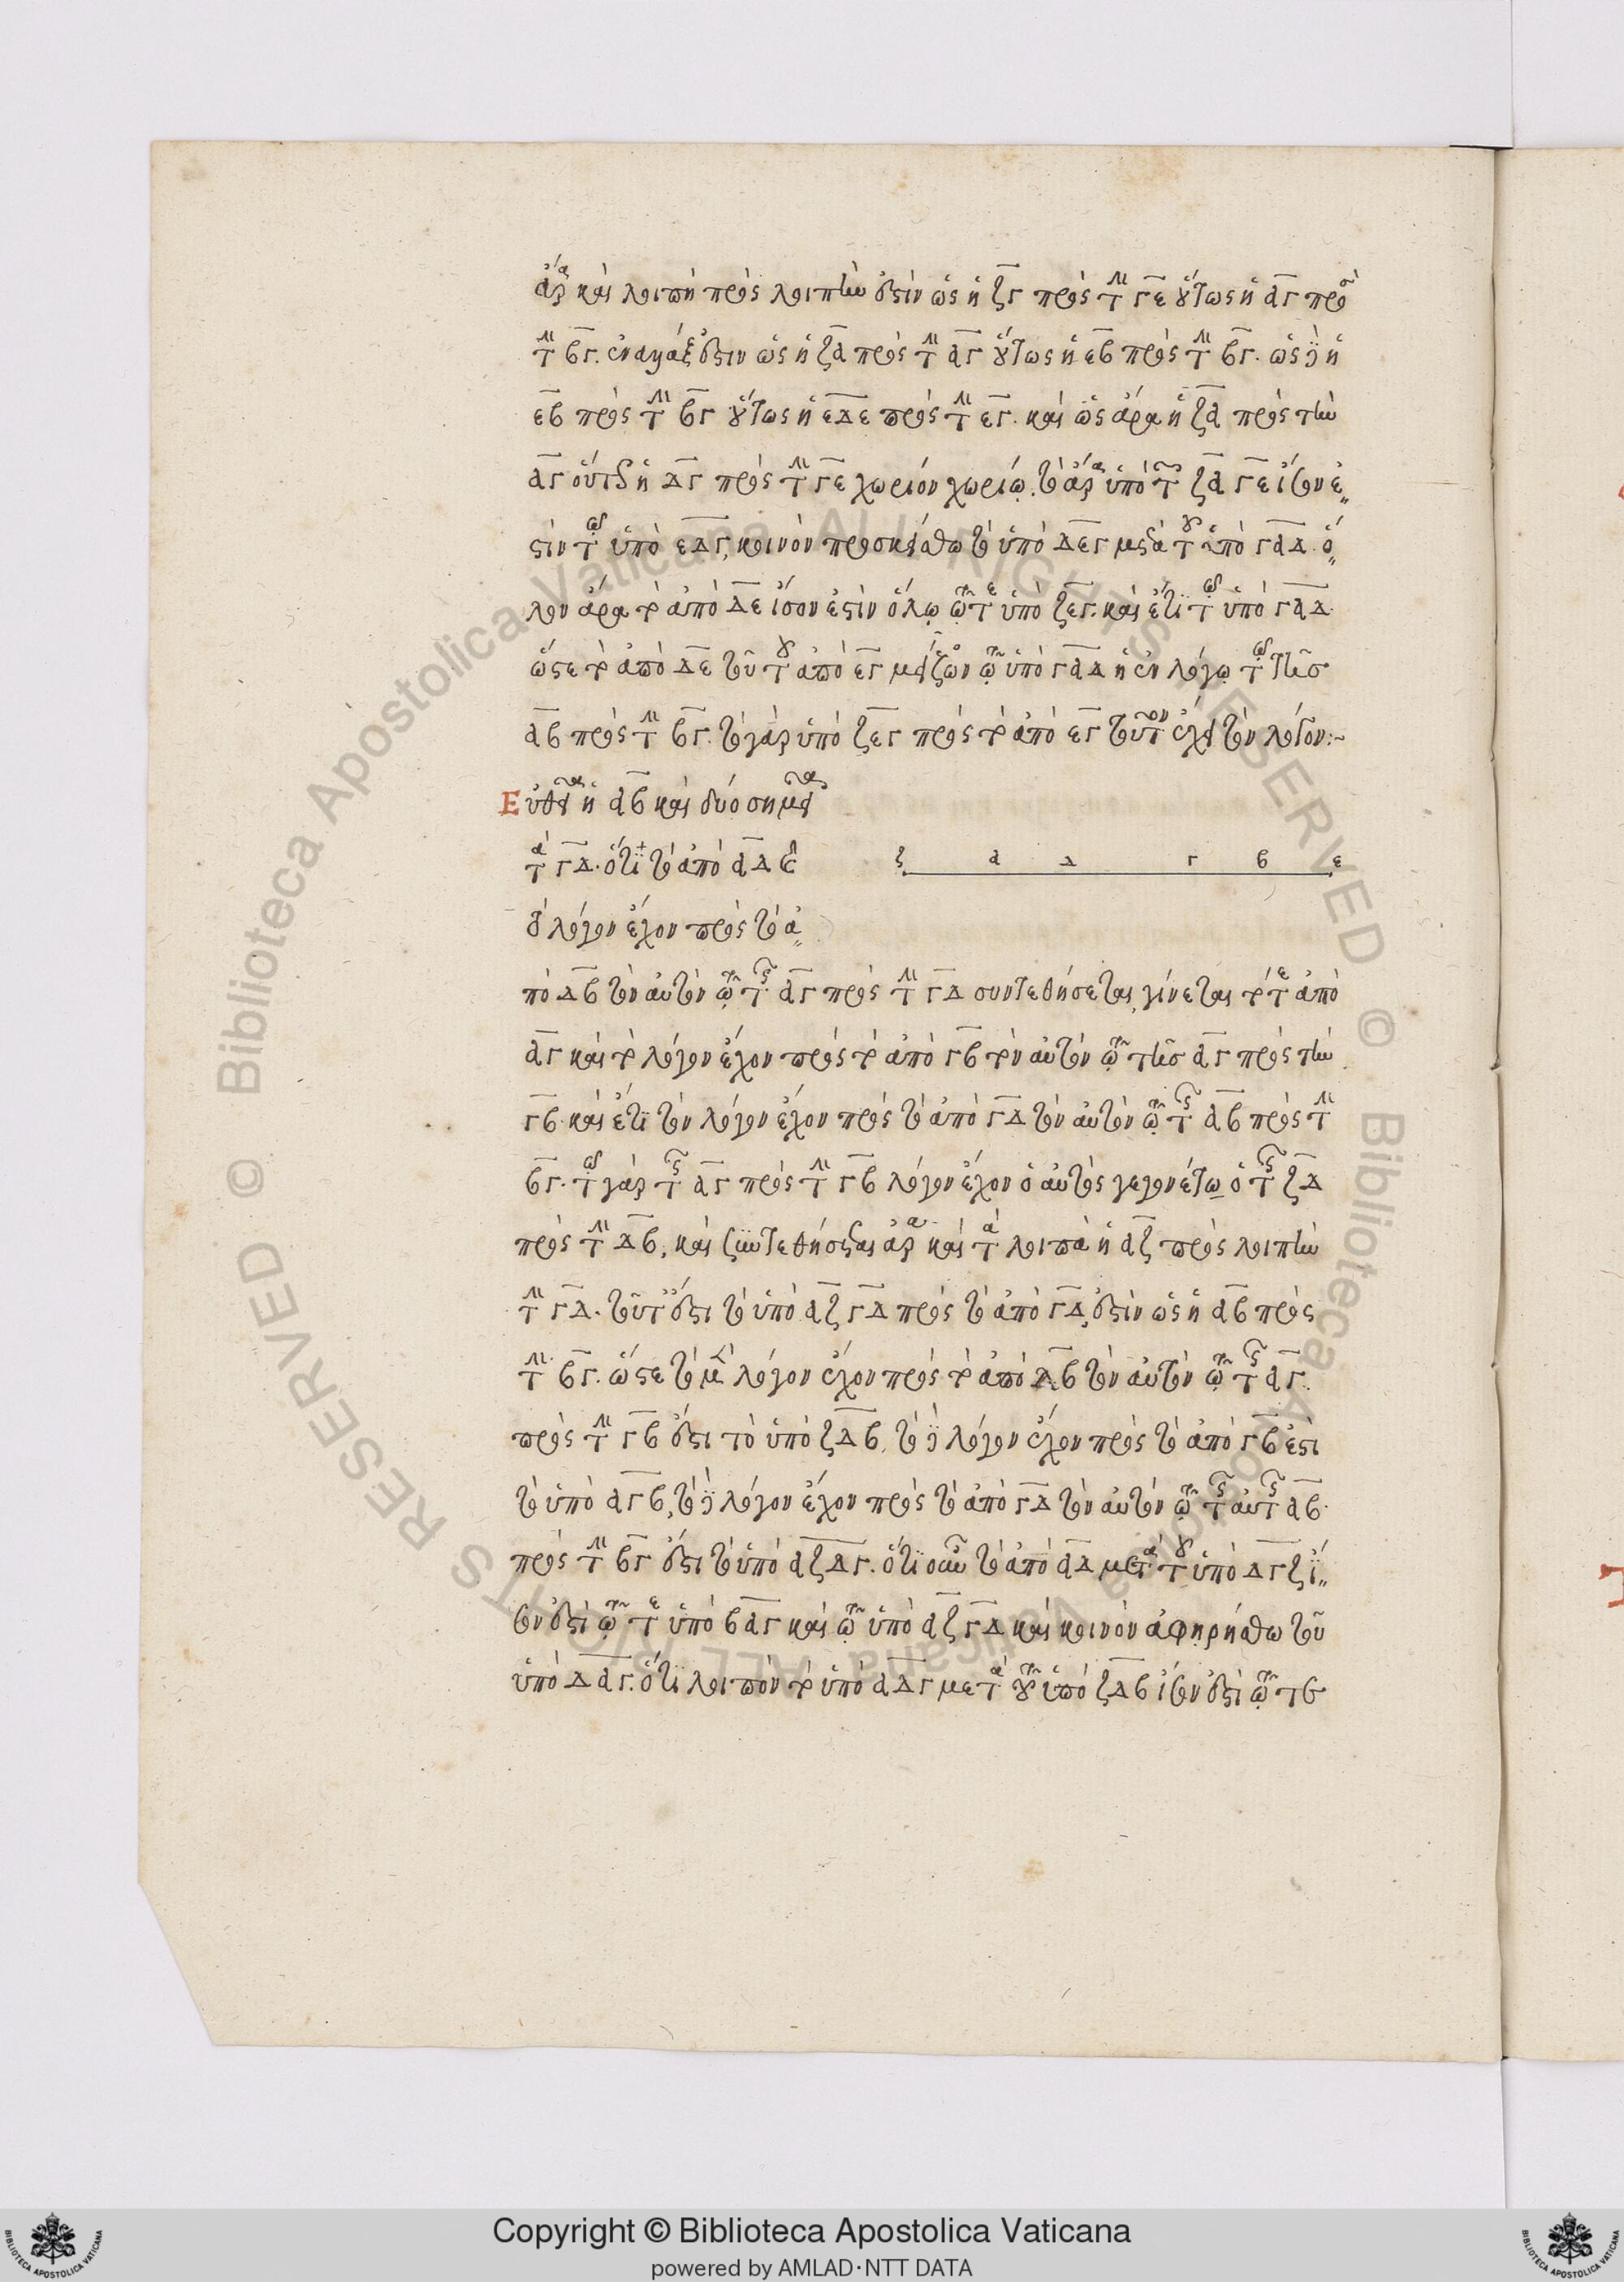 ἄρα καὶ λοιπὴ πρὸς λοιπὴν ἐστὶν ὡς ἡ ζγ πρὸς τὴν γε οὕτως ἡ αγ πρὸς
τὴν βγ. ἐναλλάξ ἐστιν ὡς ἡ ζα πρὸς τὴν αγ οὕτως ἡ εβ πρὸς τὴν βγ. ὡς δὲ ἡ
εβ πρὸς τὴν βγ οὕτως ἡ εδε πρὸς τὴν εγ. καὶ ὡς ἄρα ἡ ζα πρὸς τὴν
αγ οὕτως ἡ δγ πρὸς τὴν γε χωρίον χωρίῳ. τὸ ἄρα ὑπὸ τῶν ζα γε ἴσον ἐ
στὶν τῷ ὑπὸ εδγ, κοινὸν προσκείσθω τὸ ὑπὸ δεγ μετὰ τοῦ ὑπὸ γαδ. ὅ
λον ἄρα τὸ ἀπὸ δε ἴσον ἐστὶν ὅλῳ τῷ τε ὑπὸ ζεγ. καὶ ἔτι τῷ ὑπὸ γαδ.
ὥστε τὸ ἀπὸ δε τοῦ τοῦ ἀπὸ εγ μεῖζον τῷ ὑπὸ γαδ ἢ ἐν λόγῳ τῷ τῆς
αβ πρὸς τὴν βγ. τὸ γὰρ ὑπὸ ζεγ πρὸς τὸ ἀπὸ εγ τοῦτον ἔχει τὸν λόγον:~
Εὐθεῖα ἡ αβ καὶ δύο σημεῖα
τὰ γδ. ὅτι τὸ ἀπὸ αδ
λόγον ἔχον πρὸς τὸ ἀ
πὸ δβ τὸν αὐτὸν τῷ τῆς αγ πρὸς τὴν γδ συντεθήσεται, γίνεται τό τε ἀπὸ
αγ καὶ τὸ λόγον ἔχον πρὸς τὸ ἀπὸ γβ τὸν αὐτὸν τῷ τῆς αγ πρὸς τὴν
γβ. καὶ ἔτι τὸν λόγον ἔχον πρὸς τὸ ἀπὸ γδ τὸν αὐτὸν τῷ τῆς αβ πρὸς τὴν
βγ. τῷ γὰρ τῆς αγ πρὸς τὴν γβ λόγον ἔχον ὁ αὐτὸς γεγονέτω ὁ τῆς ζδ
πρὸς τὴν δβ, καὶ συντεθήσεται ἄρα καὶ τὰ λοιπὰ ἡ αζ πρὸς λοιπὴν
τὴν γδ. τοῦτ' ἔστι τὸ ὑπὸ αζ γδ πρὸς τὸ ἀπὸ γδ, ἐστὶν ὡς ἡ αβ πρὸς
τὴν βγ. ὥστε τὸ μὲν λόγον ἔχον πρὸς τὸ ἀπὸ δβ τὸν αὐτὸν τῷ τῆς αγ
πρὸς τὴν γβ ἔστι τὸ ὑπὸ ζδβ, τὸ δὲ λόγον ἔχον πρὸς τὸ ἀπὸ γβ ἐστι
τὸ ὑπὸ αγβ, τὸ δὲ λόγον ἔχον πρὸς τὸ ἀπὸ γδ τὸν αὐτὸν τῷ τῆς αὐτῆς αβ
πρὸς τὴν βγ ἔστι τὸ ὑπὸ αζδγ. ὅτι οὖν τὸ ἀπὸ αδ μετὰ τοῦ ὑπὸ δγζ ἴ
σον ἐστὶ τῷ τε ὑπὸ βαγ καὶ τῷ ὑπὸ αζ γδ καὶ κοινὸν ἀφῃρήσθω τοῦ
ὑπὸ δαγ. ὅτι λοιπὸν τὸ ὑπὸ αδγ μετὰ τοῦ ὑπὸ ζδβ ἴσον ἐστὶ τῷ τε
ζ α δ γ β ε
Copyright © Biblioteca Apostolica Vaticana
powered by AMLAD·NTT DATA